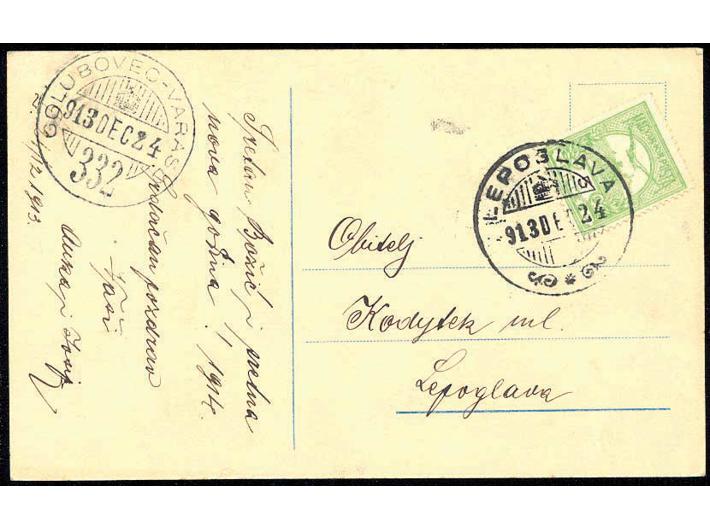 GOLUBOVEC-VARASD
913 DEC 24
332
Sretan Božić i sretna
nova godina, 1914.
Srdačan pozdrav
Vaši
/12 1913.
LEPOGLAVA
913 DEC 24
Obitelj
Kodytek ml.
Lepoglava